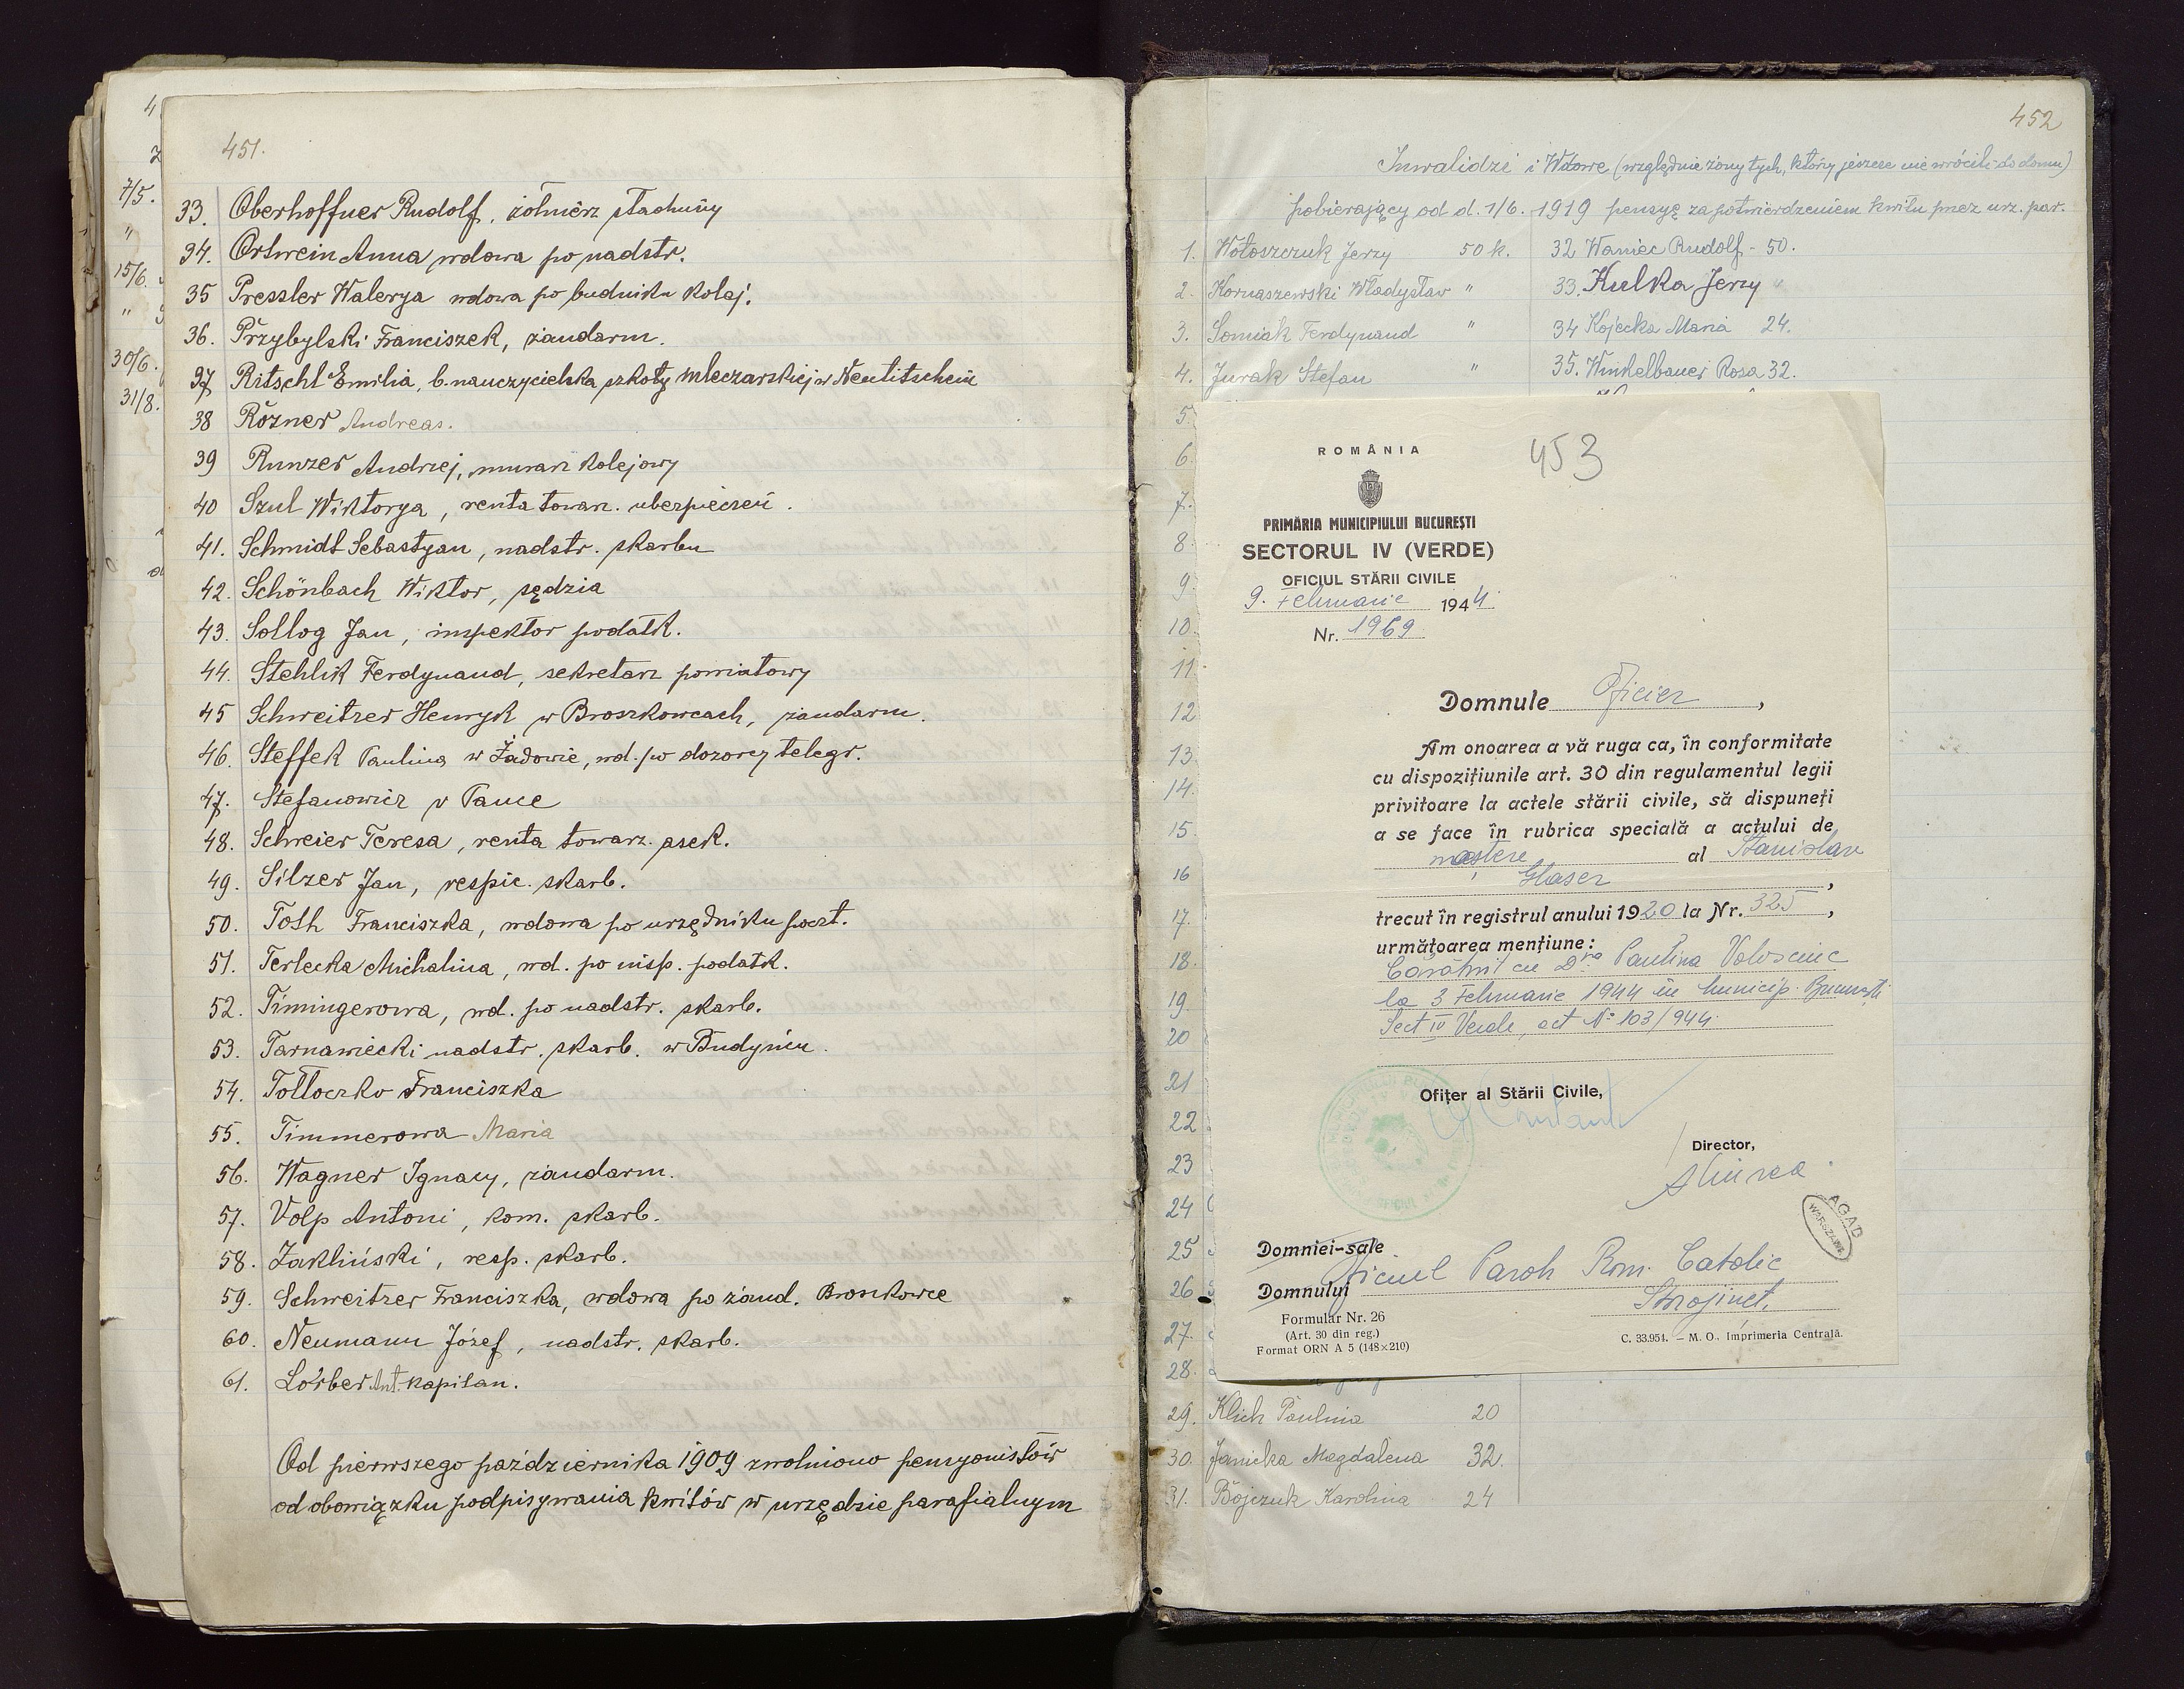 451.
33. Oberhoffner Rudolf, żołnierz
34. Ortwein Anna wdowa po nadstr.
35 Pressler Walerya wdowa po budniku kolej.
36. Przybylski Franciszek, żandarm.
37 Ritschl Emilia, b. nauczycielka szkoły mleczarskiej w Neutitschein
38 Rözner Andreas.
39 Runzer Andrzej, murarz kolejowy
40 Szul Wiktorya, renta towarz. ubezpieczeń.
41. Schmidt Sebastyan, nadstr. skarbu
42. Schönbach Wiktor, sędzia
43. Sollog Jan, inspektor podatk.
44. Stehlik Ferdynand, sekretarz powiatowy
45 Schweitzer Henryk w Broszkowcach, żandarm.
46. Steffek Paulina w Żadowie, wd. po dozorcy telegr.
47. Stefanowicz v Pance
48. Schreier Teresa, renta towarz. asek.
49. Silzer Jan, respic. skarb.
50. Toth Franciszka, wdowa po urzędniku poczt.
51. Terlecka Michalina, wd. po insp. podatk.
52. Timingerowa, wd. po nadstr. skarb.
53. Tarnawiecki nadstr. skarb. w Budyńcu.
54. Tołłoczko Franciszka
55. Timmerowa Maria
56. Wagner Ignacy, żandarm.
57. Volp Antoni, kom. skarb.
58. Zakliński, resp. skarb.
59. Schweitzer Franciszka, wdowa po żand. Broszkowce
60. Neumann Józef, nadstr. skarb.
61. Lörber Ant. kapitan.
Od pierwszego października 1909 zwolniono pensyonistów
od obowiązku podpisywania kwitów w urzędzie parafialnym
7/5.
15/6.
30/6.
31/8.
452
Inwalidzi i Wdowe (względnie żony tych, którzy jeszcze nie wrócili do domu)
pobierający od d. 1/6. 1919 pensyę za potwierdzeniem kwitu przez urz. par.
1. Wołoszczuk Jerzy 50 k.
2. Kornaszewski Władysław "
3. Somiak Ferdynand "
4. Jurak Stefan "
5.
6.
7.
8.
9.
10.
11.
12
13
14.
15
16
17.
18.
19.
20
21
22
23
24
25
26
27.
28.
29. Klich Paulina 20
30. Janicka Magdalena 32.
31. Bojczuk Karolina 24
32 Waniec Rudolf - 50.
33. Kulka Jerzy "
34 Kojecka Maria 24.
35. Winkelbauer Rosa 32.
453
ROMÂNIA
PRIMĂRIA MUNICIPIULUI BUCUREȘTI
SECTORUL IV (VERDE)
OFICIUL STĂRII CIVILE
9. Februarie 1944.
Nr. 1969
Domnule Oficier,
Am onoarea a vă ruga ca, în conformitate
cu dispozițiunile art. 30 din regulamentul legii
privitoare la actele stării civile, să dispuneți
a se face în rubrica specială a actului de
naștere al Stanislav
Glaser,
trecut în registrul anului 1920 la Nr. 325,
următoarea mențiune:
Căsătorit cu D-ra Paulina Volosciuc
la 3 Februarie 1944 în Municip. București
Sect IV Verde, act No 103/944.
Ofițer al Stării Civile,
Director,
AGAD
WARSZAWA
Domniei-sale
Domnului Oficiul Paroh Rom. Catolic
Storojineț.
Formular Nr. 26
(Art. 30 din reg.)
Format ORN A 5 (148×210)
C. 33.951. – M. O. Imprimeria Centrală.